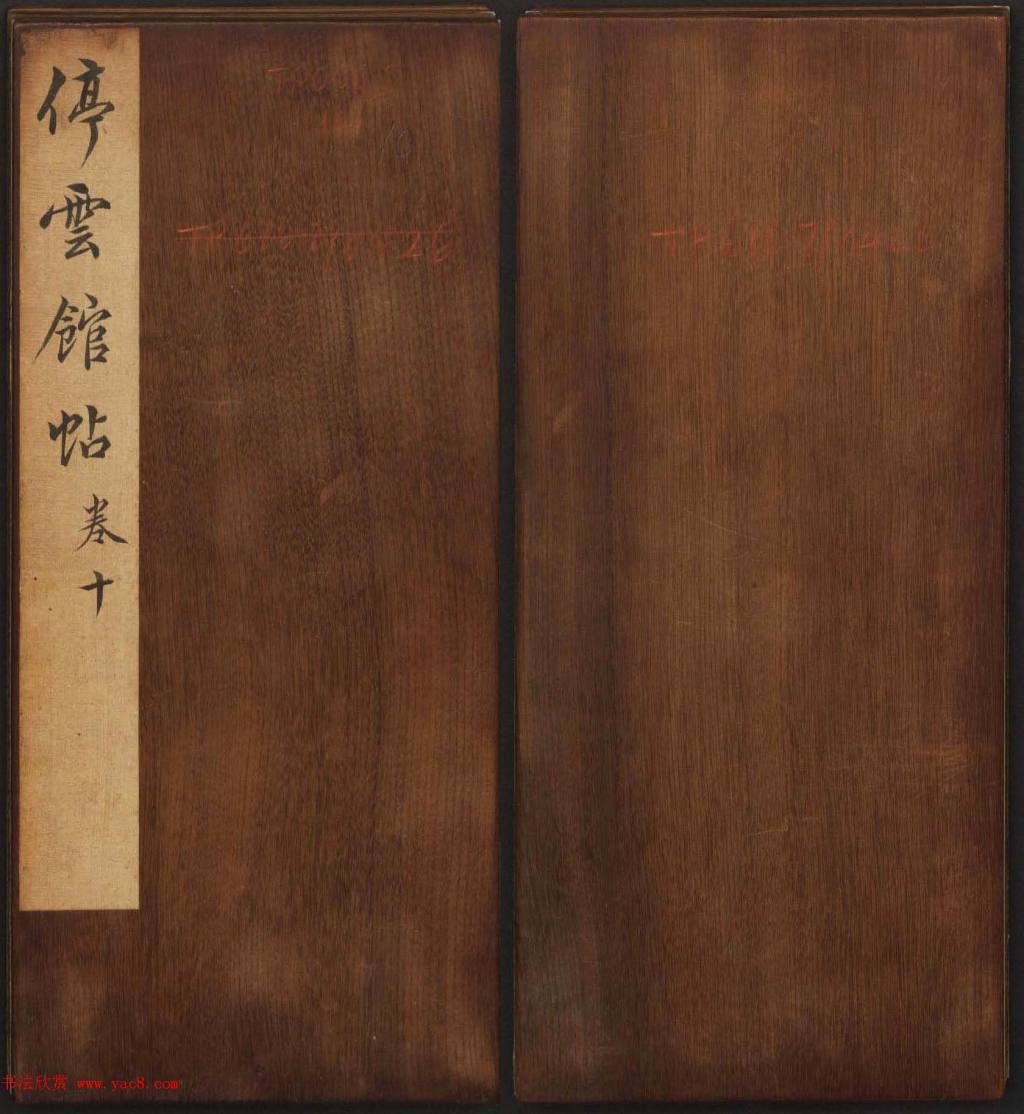 停雲館帖 卷十
书法欣赏 www.yac8.com